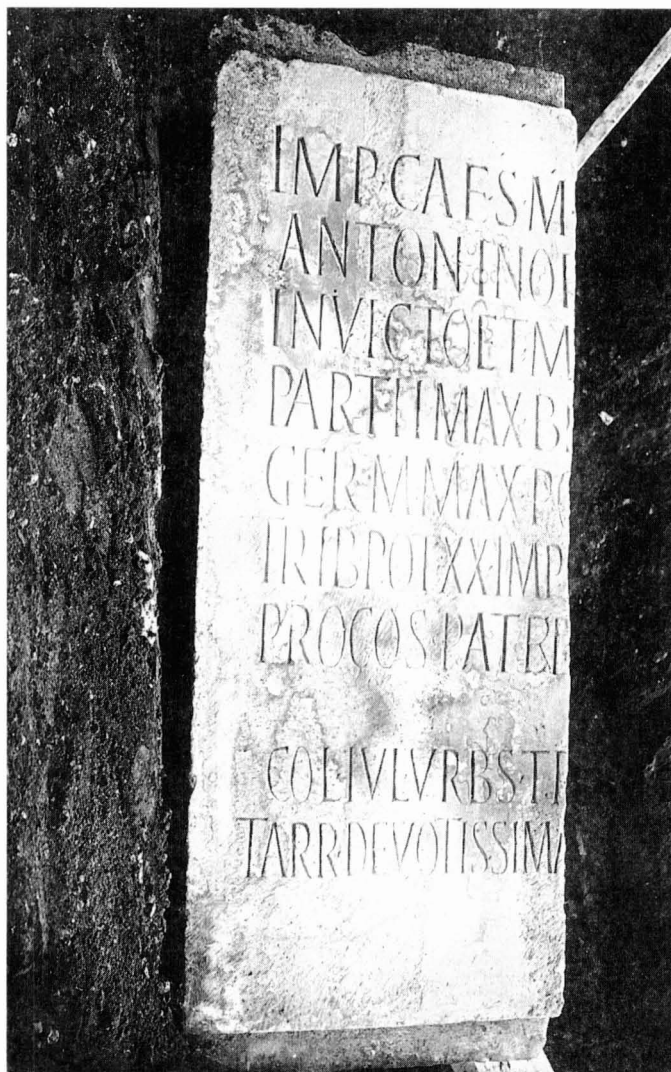 IMP·CAES·M
ANTONINO
INVICTO ET M
PARTH MAX B
GERM MAX PO
TRIB POT XX·IMP
PROCOS PATRI
COL IVL VRBS·T·
TARR·DEVOTISSIMA